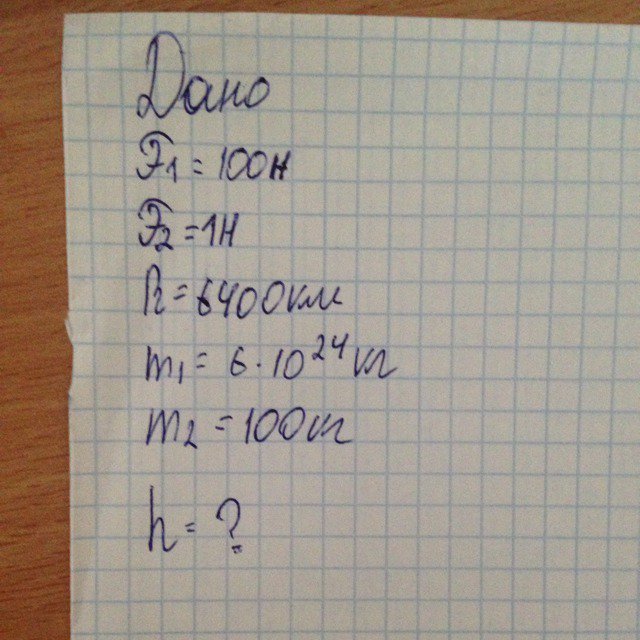 Дано
F₁ = 100н
F₂ = 1Н
R = 6400км
m₁ = 6·10²⁴кг
m₂ = 100кг
h = ?